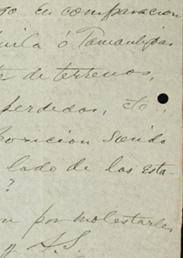 go en comparacion
uila ó Tamaulipas
de terrenos,
perdidas, etc
posicion siendo
lado de los Esta-
?
n por molestarle
y S.S.